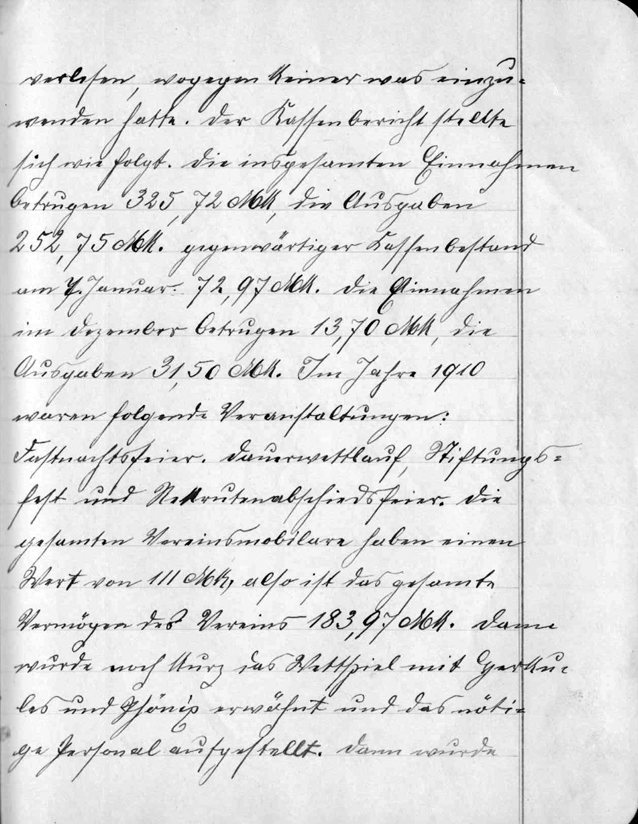 verlesen, wogegen keiner was einzu-
wenden hatte. Der Kassenbericht stellte
sich wie folgt. Die insgesamten Einnahmen
betrugen 325,72 Mk, die Ausgaben
252,75 Mk. gegenwärtiger Kassenbestand
am 7. Januar: 72,97 Mk. Die Einnahmen
im Dezember betrugen 13,70 Mk, die
Ausgaben 31,50 Mk. Im Jahre 1910
waren folgende Veranstaltungen:
Fastnachtsfeier. Dauerwettlauf, Stiftungs=
fest und Rekrutenabschiedsfeier. Die
gesamten Vereinsmobilare haben einen
Wert von 111 Mk, also ist das gesamte
Vermögen des Vereins 183,97 Mk. Dann
wurde noch kurz das Wettspiel mit Herku-
les und Phönix erwähnt und das nöti-
ge Personal aufgestellt. Dann wurde